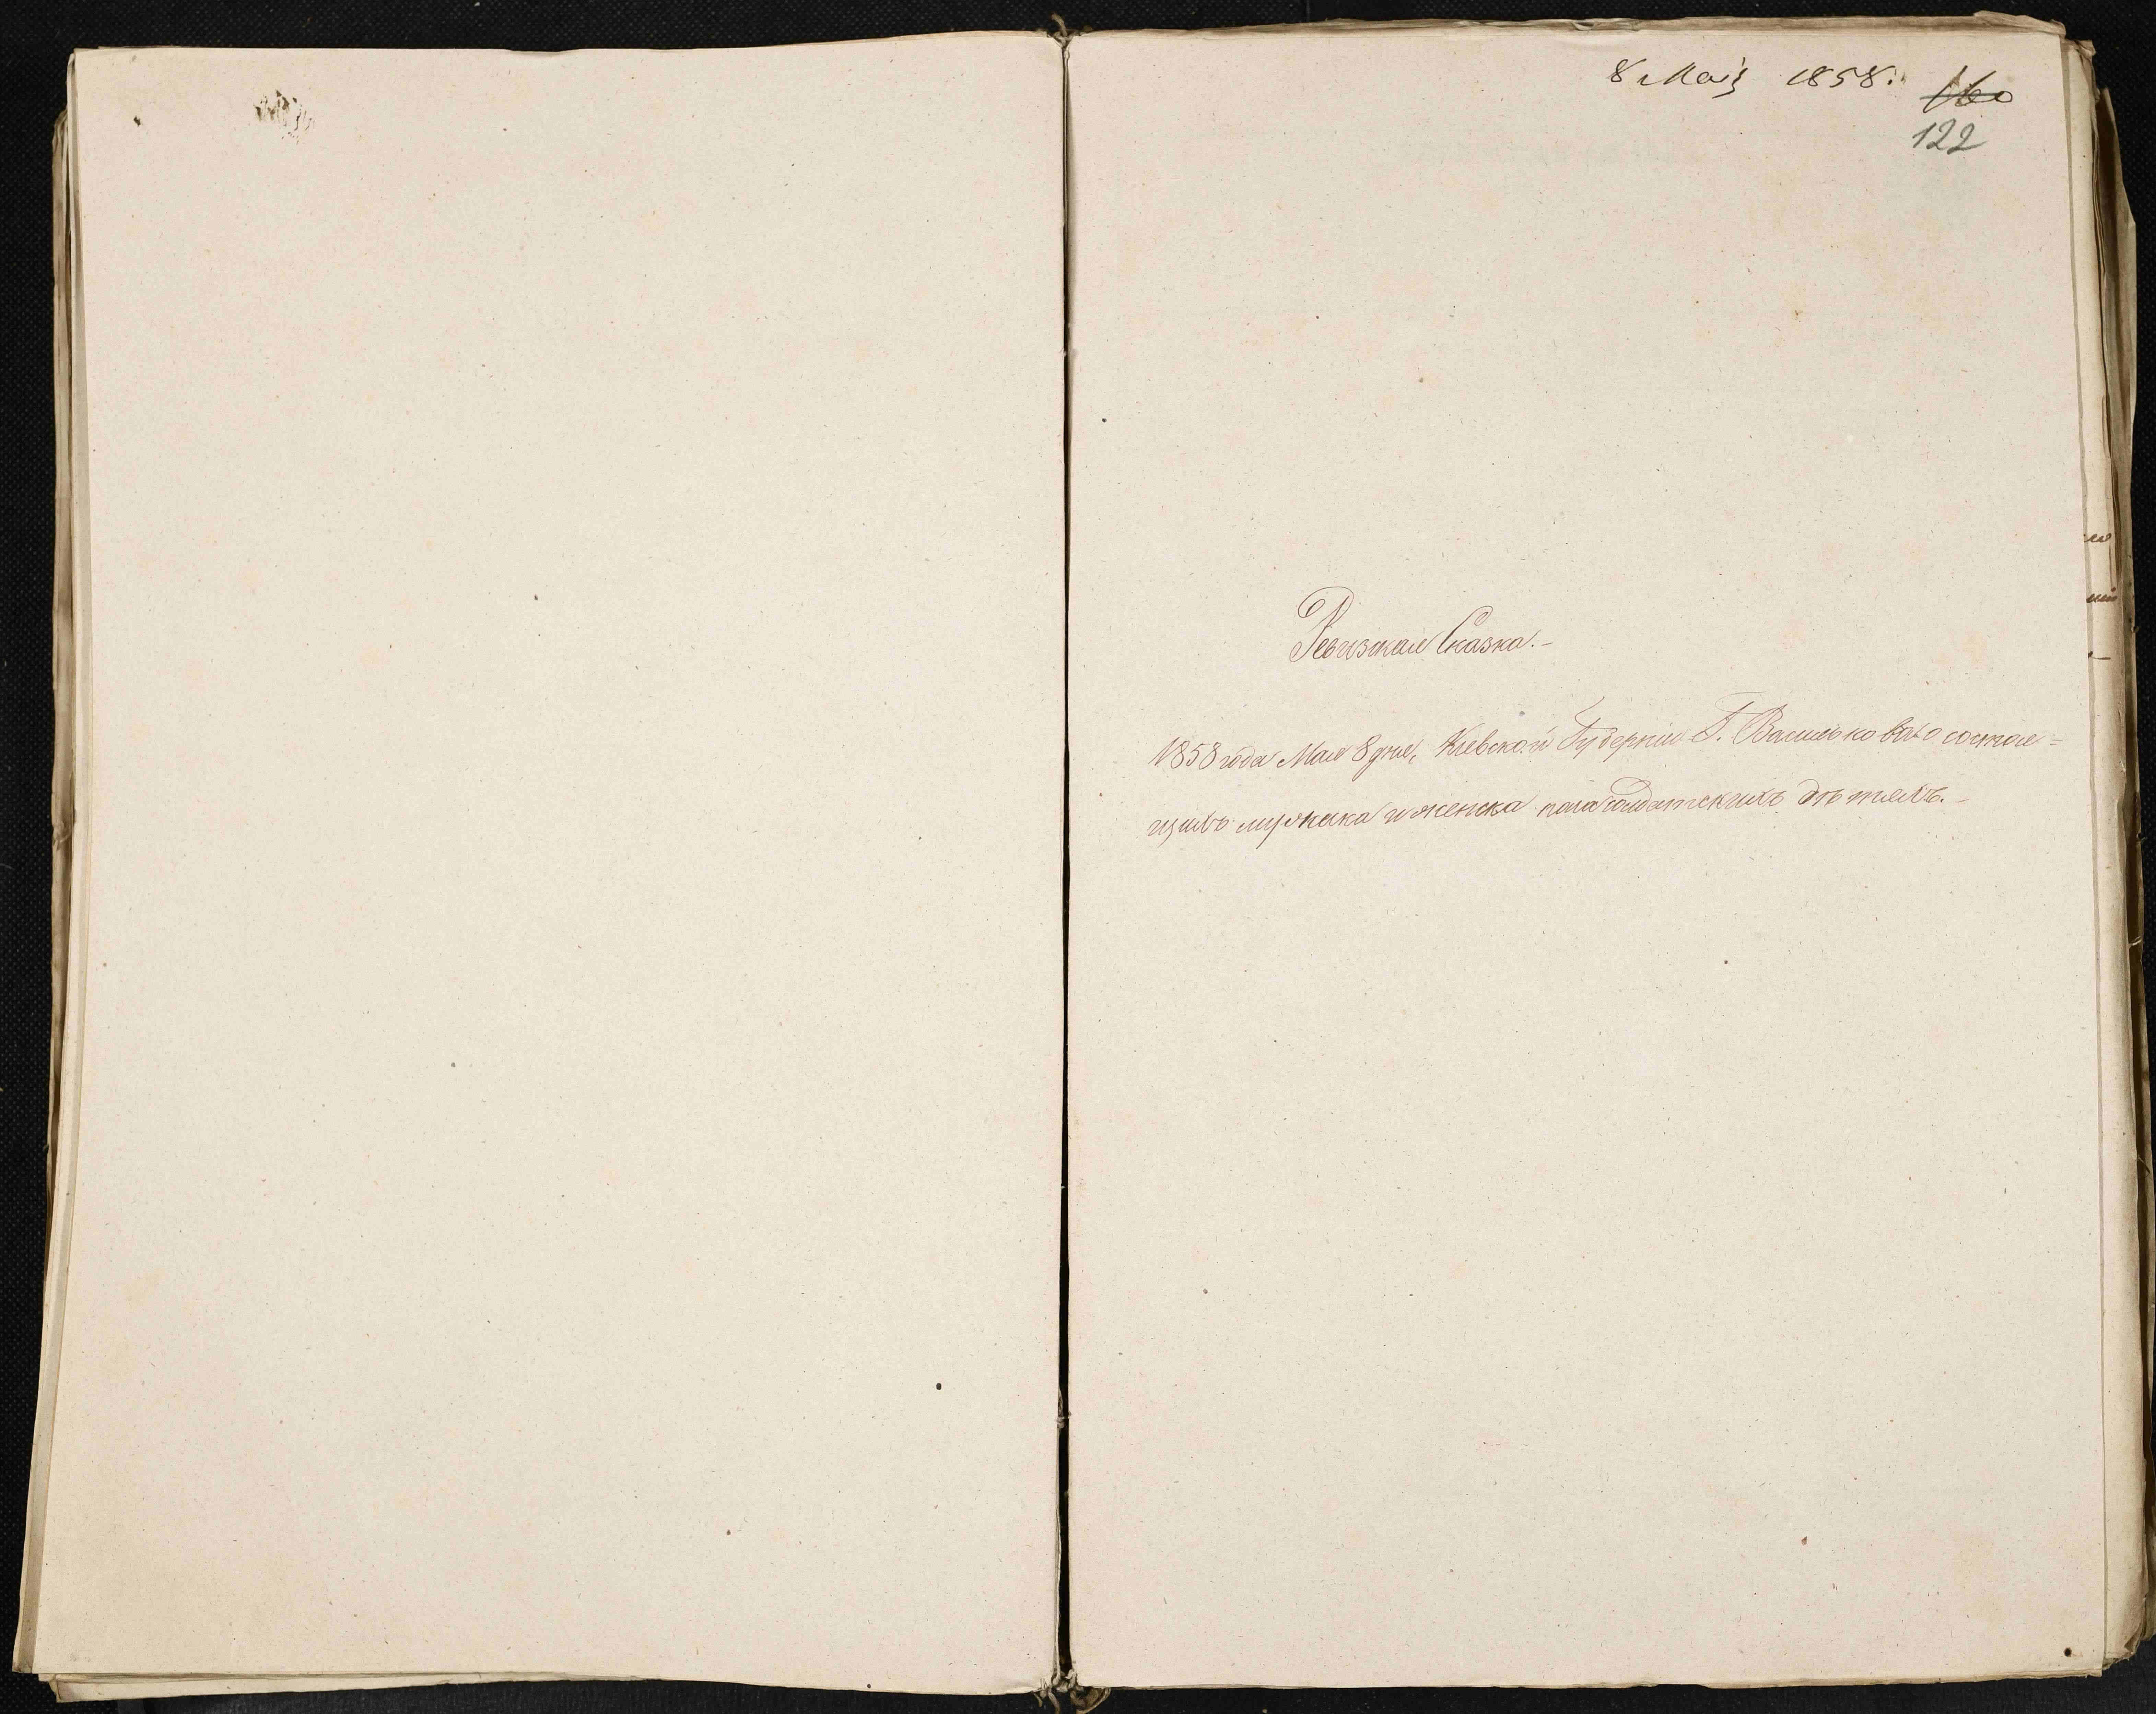 8 Маія 1858.
160
122
Ревизская Сказка.-
1858 года Мая 8 дня, Кіевской Губерніи Г. Василькова о состоя=
щихъ мужска и женска пола солдатскихъ дѣтяхъ.-